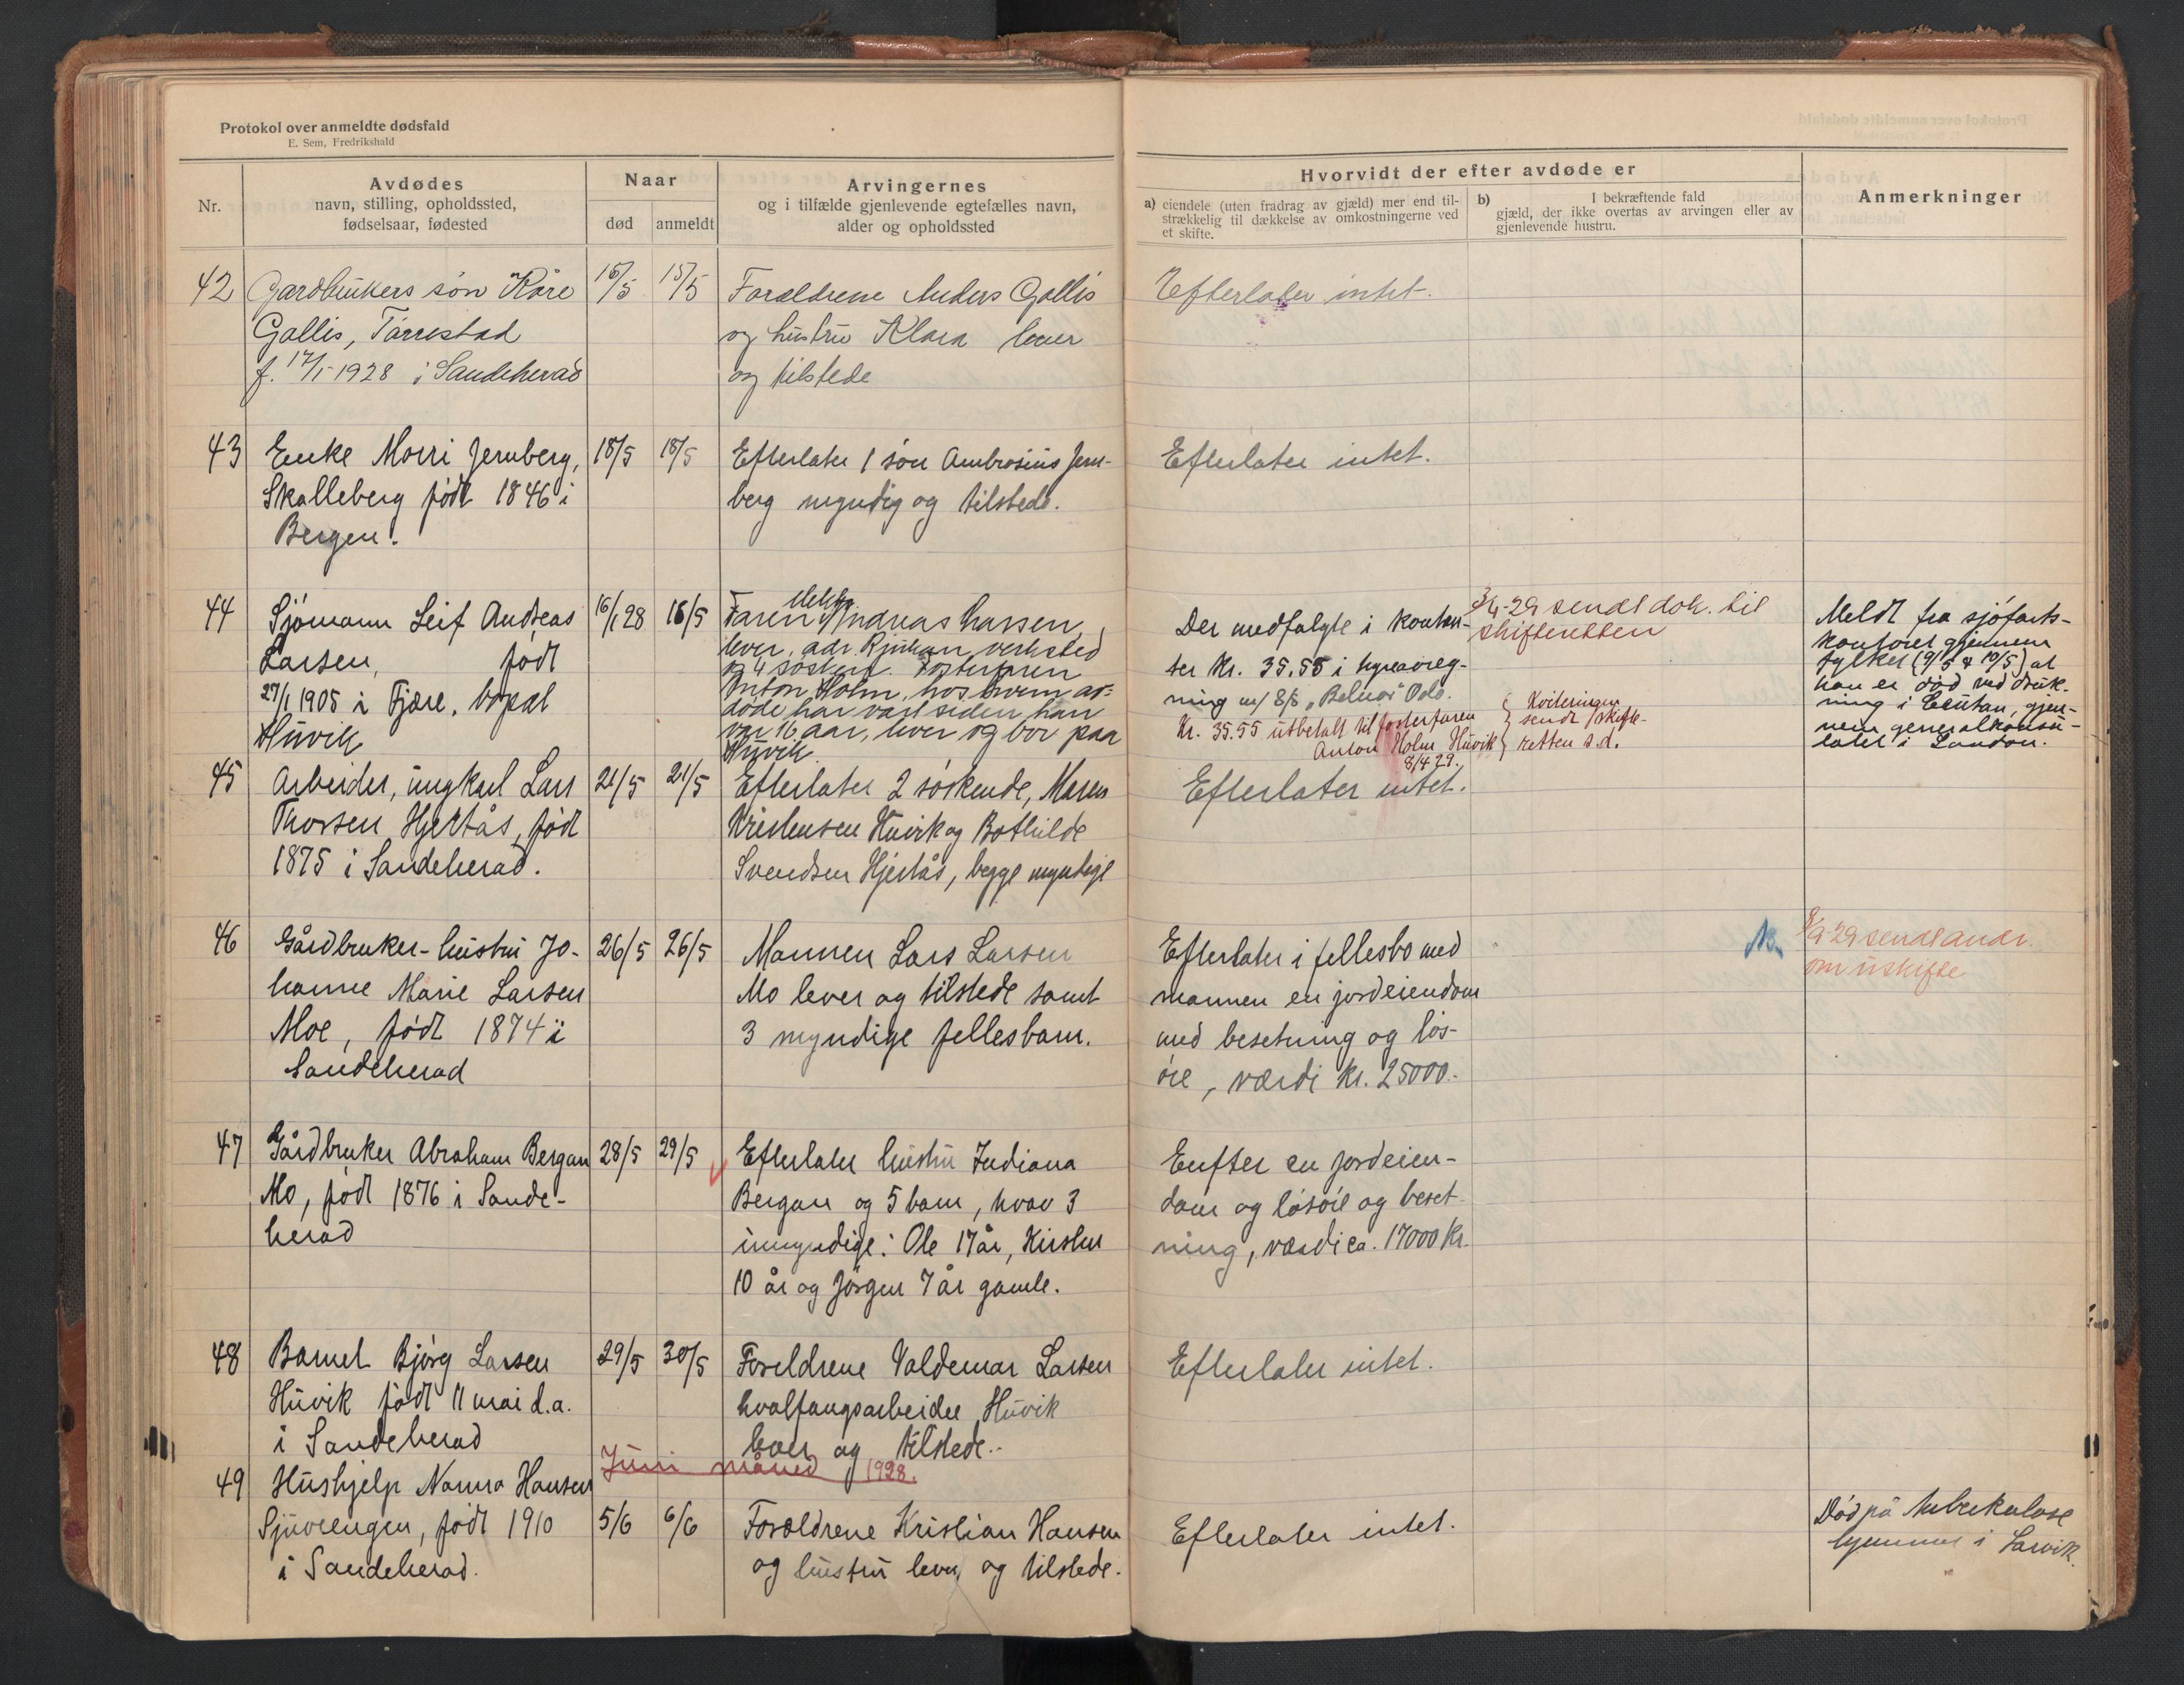 Protokol over anmeldte dødsfald
E. Sem, Fredrikshald
Nr.
Avdødes
navn, stilling, opholdssted,
fødselsaar, fødested
Naar
død
anmeldt
Arvingernes
og i tilfælde gjenlevende egtefælles navn,
alder og opholdssted
Hvorvidt der efter avdøde er
a) eiendele (uten fradrag av gjæld) mer end til-
strækkelig til dækkelse av omkostningerne ved
et skifte.
b) I bekræftende fald
gjæld, der ikke overtas av arvingen eller av
gjenlevende hustru.
Anmerkninger
42
Gardbrukers søn Kåre
Gallis, Tørrestad
f. 17/1-1928 i Sandeherad
15/5
Forældrene Anders Gallis
og hustru Klara lever
og tilstede
Efterlater intet.
43
Enke Morri Jernberg,
Skalleberg født 1846 i
Bergen.
18/5
18/5
Efterlater 1 søn Ambrosius Jern-
berg myndig og tilstede.
Efterlater intet.
44
Sjømann Leif Andreas
Larsen, født
27/1 1905 i Fjære, bopæl
Huvik
16/1 28
16/5
Faren Andreas Larssen,
lever, adr. Rjukan verksted
og 4 søsken. Fosterfaren
Anton Holm, hos hvem av-
døde har vært siden han
var 16 aar, lever og bor paa
Huvik
Der medfølgte i kontan-
ter kr. 35.55 i hyreavreg-
ning m/ S/S "Belnor" Oslo.
Kr. 35.55 utbetalt til fosterfaren
Anton Holm Huvik
8/4 29.
3/4-29 sendt dok. til
skifteretten
Kvitteringen
sendt skifte-
retten s.d.
Meldt fra sjøfarts-
kontoret gjennem
fylket (9/5 & 10/5) at
han er død ved druk-
ning i gjen-
nem generalkonsu-
latet i London.
45
Arbeider, ungkarl Lars
Thorsen Hjertås, født
1875 i Sandeherad.
21/5
21/5
Efterlater 2 søskende, Maren
Kristensen Huvik og Bothilde
Svendsen Hjertås, begge myndige
Efterlater intet.
46
Gårdbruker-hustru Jo-
hanne Marie Larsen
Moe, født 1874 i
Sandeherad
26/5
26/5
Mannen Lars Larsen
Mo lever og tilstede samt
3 myndige fellesbarn.
Efterlater i fellesbo med
mannen en jordeiendom
med besetning og løs-
øre, værdi kr. 25000.-
8/9-29 sendt andr.
om uskifte
47
Gårdbruker Abraham Bergan
Mo, født 1876 i Sande-
herad
28/5
29/5
Efterlater hustru Indiana
Bergan og 5 barn, hvav 3
umyndige: Ole 17 år, Kirsten
10 år og Jørgen 7 år gamle.
en jordeien-
dom og løsøre og beset-
ning, værdi ca. 17000 kr.
48
Barnet Bjørg Larsen
Huvik født 11 mai d.a.
i Sandeherad
29/5
30/5
Foreldrene Valdemar Larsen
hvalfangsarbeider Huvik
lever og tilstede.
Efterlater intet.
Juni måned 1928.
49
Hushjelp Nanna Hansen
Sjuvengen, født 1910
i Sandeherad.
5/6
6/6
Forældrene Kristian Hansen
og hustru lever og tilstede.
Efterlater intet.
Død på tuberkulose
hjemmet i Larvik.